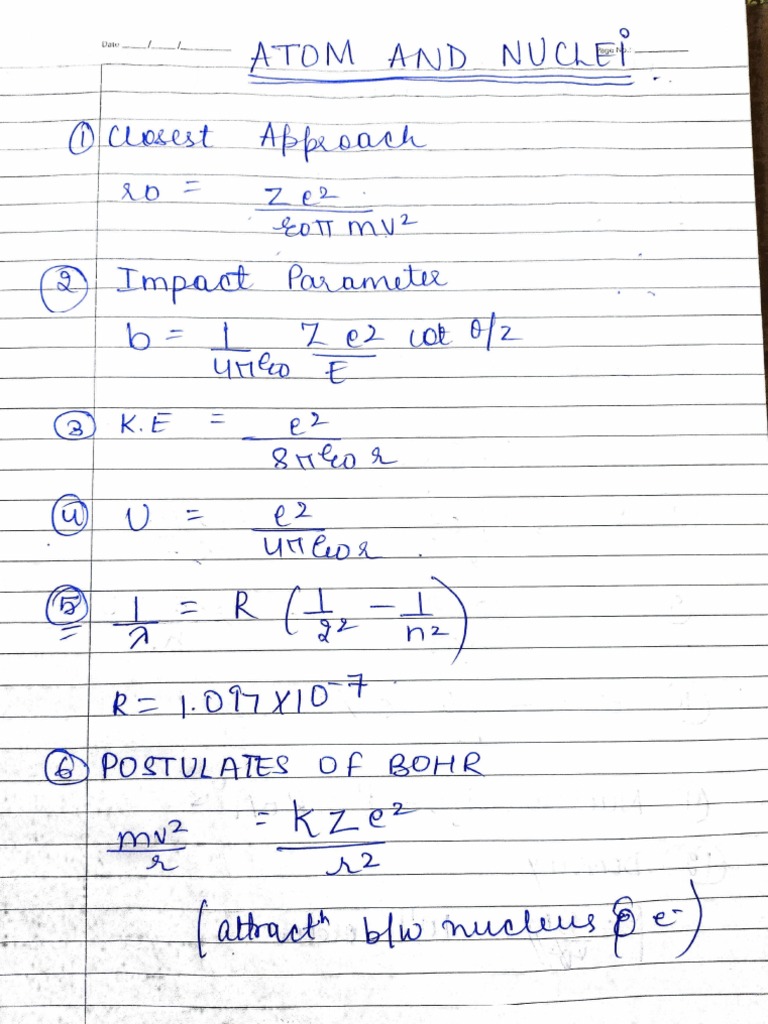 Date ___/___/______ Page No.: ______
ATOM AND NUCLEI
① Closest Approach
r0 = Z e² / ε0π mv²
② Impact Parameter
b = 1/4πε0 Z e²/E cot θ/2
③ K.E = e² / 8πε0 r
④ U = e² / 4πε0 r
⑤ 1/λ = R (1/2² − 1/n²)
R = 1.097 X 10⁻⁷
⑥ POSTULATES OF BOHR
mv²/r = K Z e² / r²
(attractⁿ b/w nucleus & e⁻)